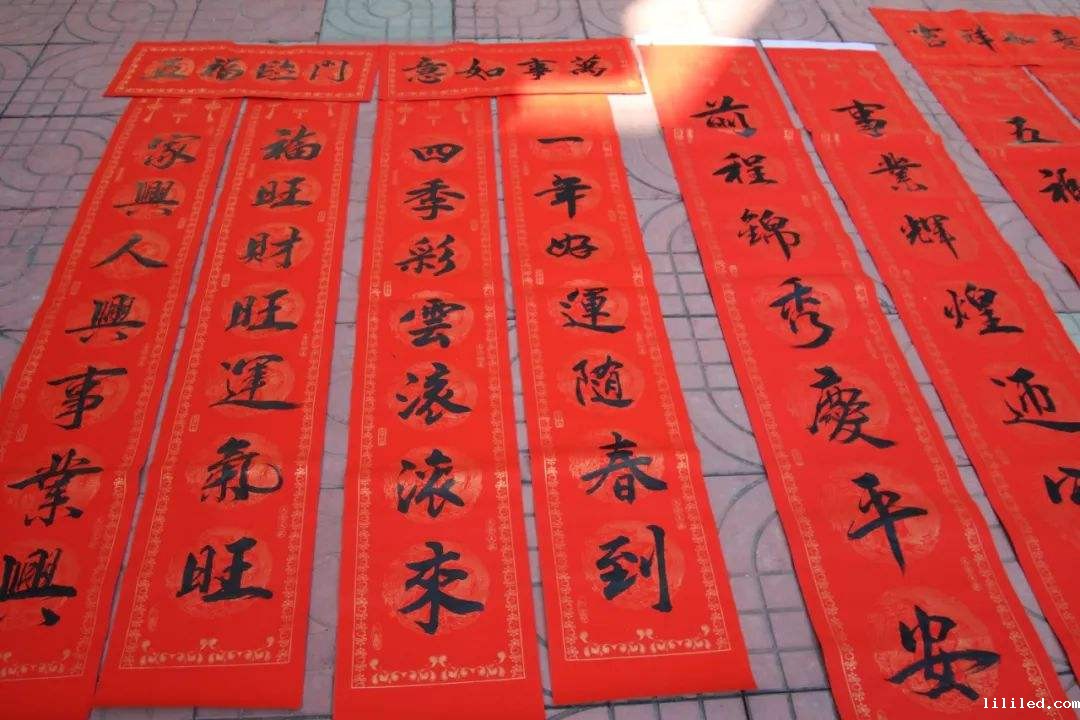 五福臨門
家興人興事業興
福旺財旺運氣旺
萬事如意
一年好運随春到
四季彩雲滚滚來
事業輝煌迎
前程錦秀慶平安
吉祥如意
五福